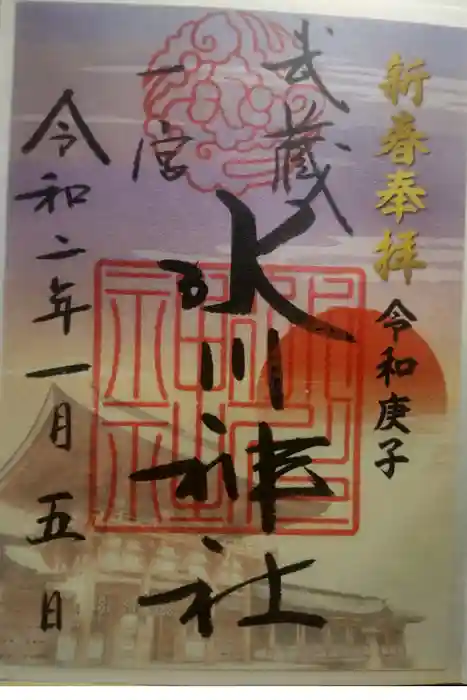 新春奉拝 令和庚子
武蔵
一宮
氷川神社
令和二年一月五日